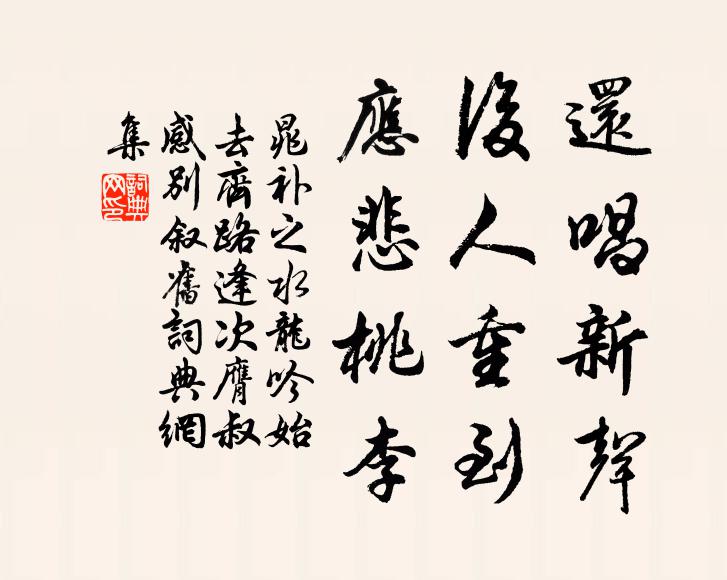 還唱新聲
後人重到
應悲桃李
晁补之水龍吟始
去齊路逢次膺叔
感別叙舊詞典網
集
詞典
网印